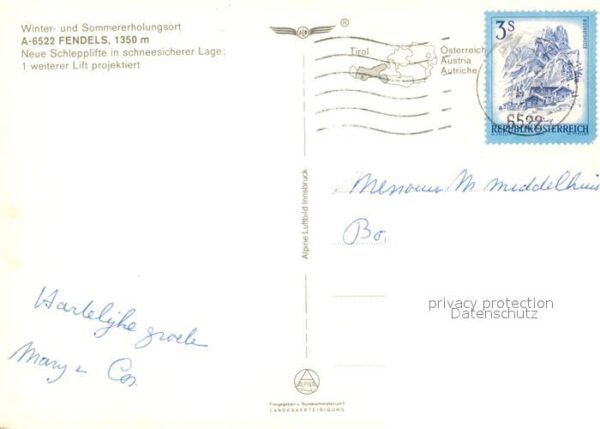 Winter- und Sommererholungsort
A-6522 FENDELS, 1350 m
Neue Schlepplifte in schneesicherer Lage;
1 weiterer Lift projektiert
®
Tirol
Österreich
Austria
Autriche
3S
6522
REPUBLIK ÖSTERREICH
Alpine Luftbild Innsbruck
M Middelhuis
Bo
privacy protection
Datenschutz
Hartelijke groeten
Mary + Cor.
Freigegeben v. Bundesministerium f.
LANDESVERTEIDIGUNG